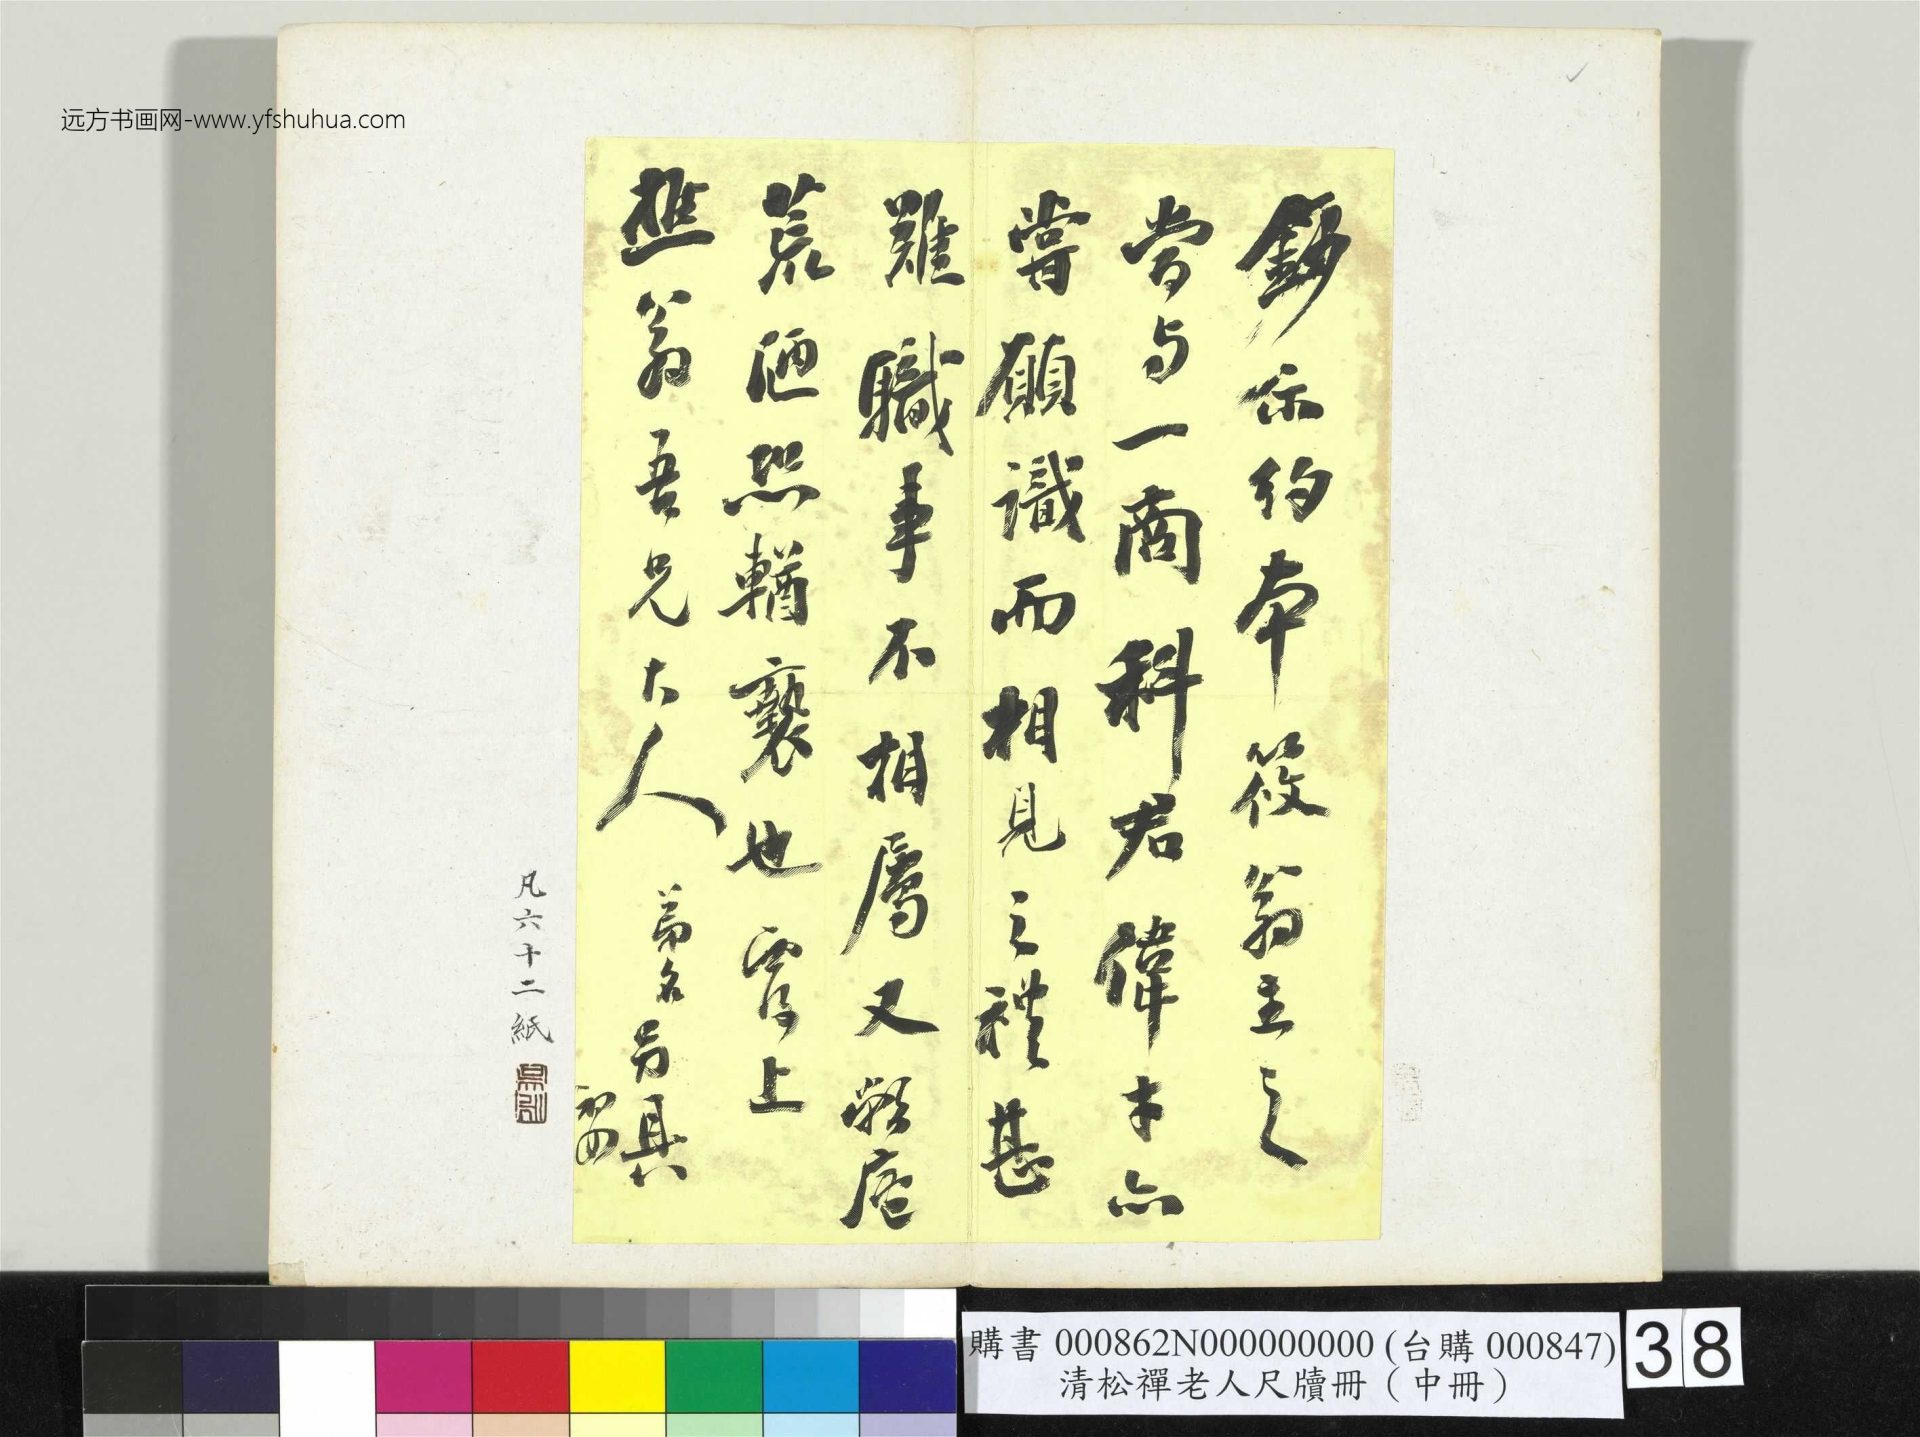 远方书画网-www.yfshuhua.com
鈔示約本筱翁主之
當与一商科君偉才亦
嘗願識而相見之禮甚
難職事不相屬又齋庵
荒陋恐輶褻也覆上
樵翁吾兄大人
弟名另具
初四
凡六十二紙
購書 000862N000000000 (台購 000847)
清松禪老人尺牘冊（中冊）
38